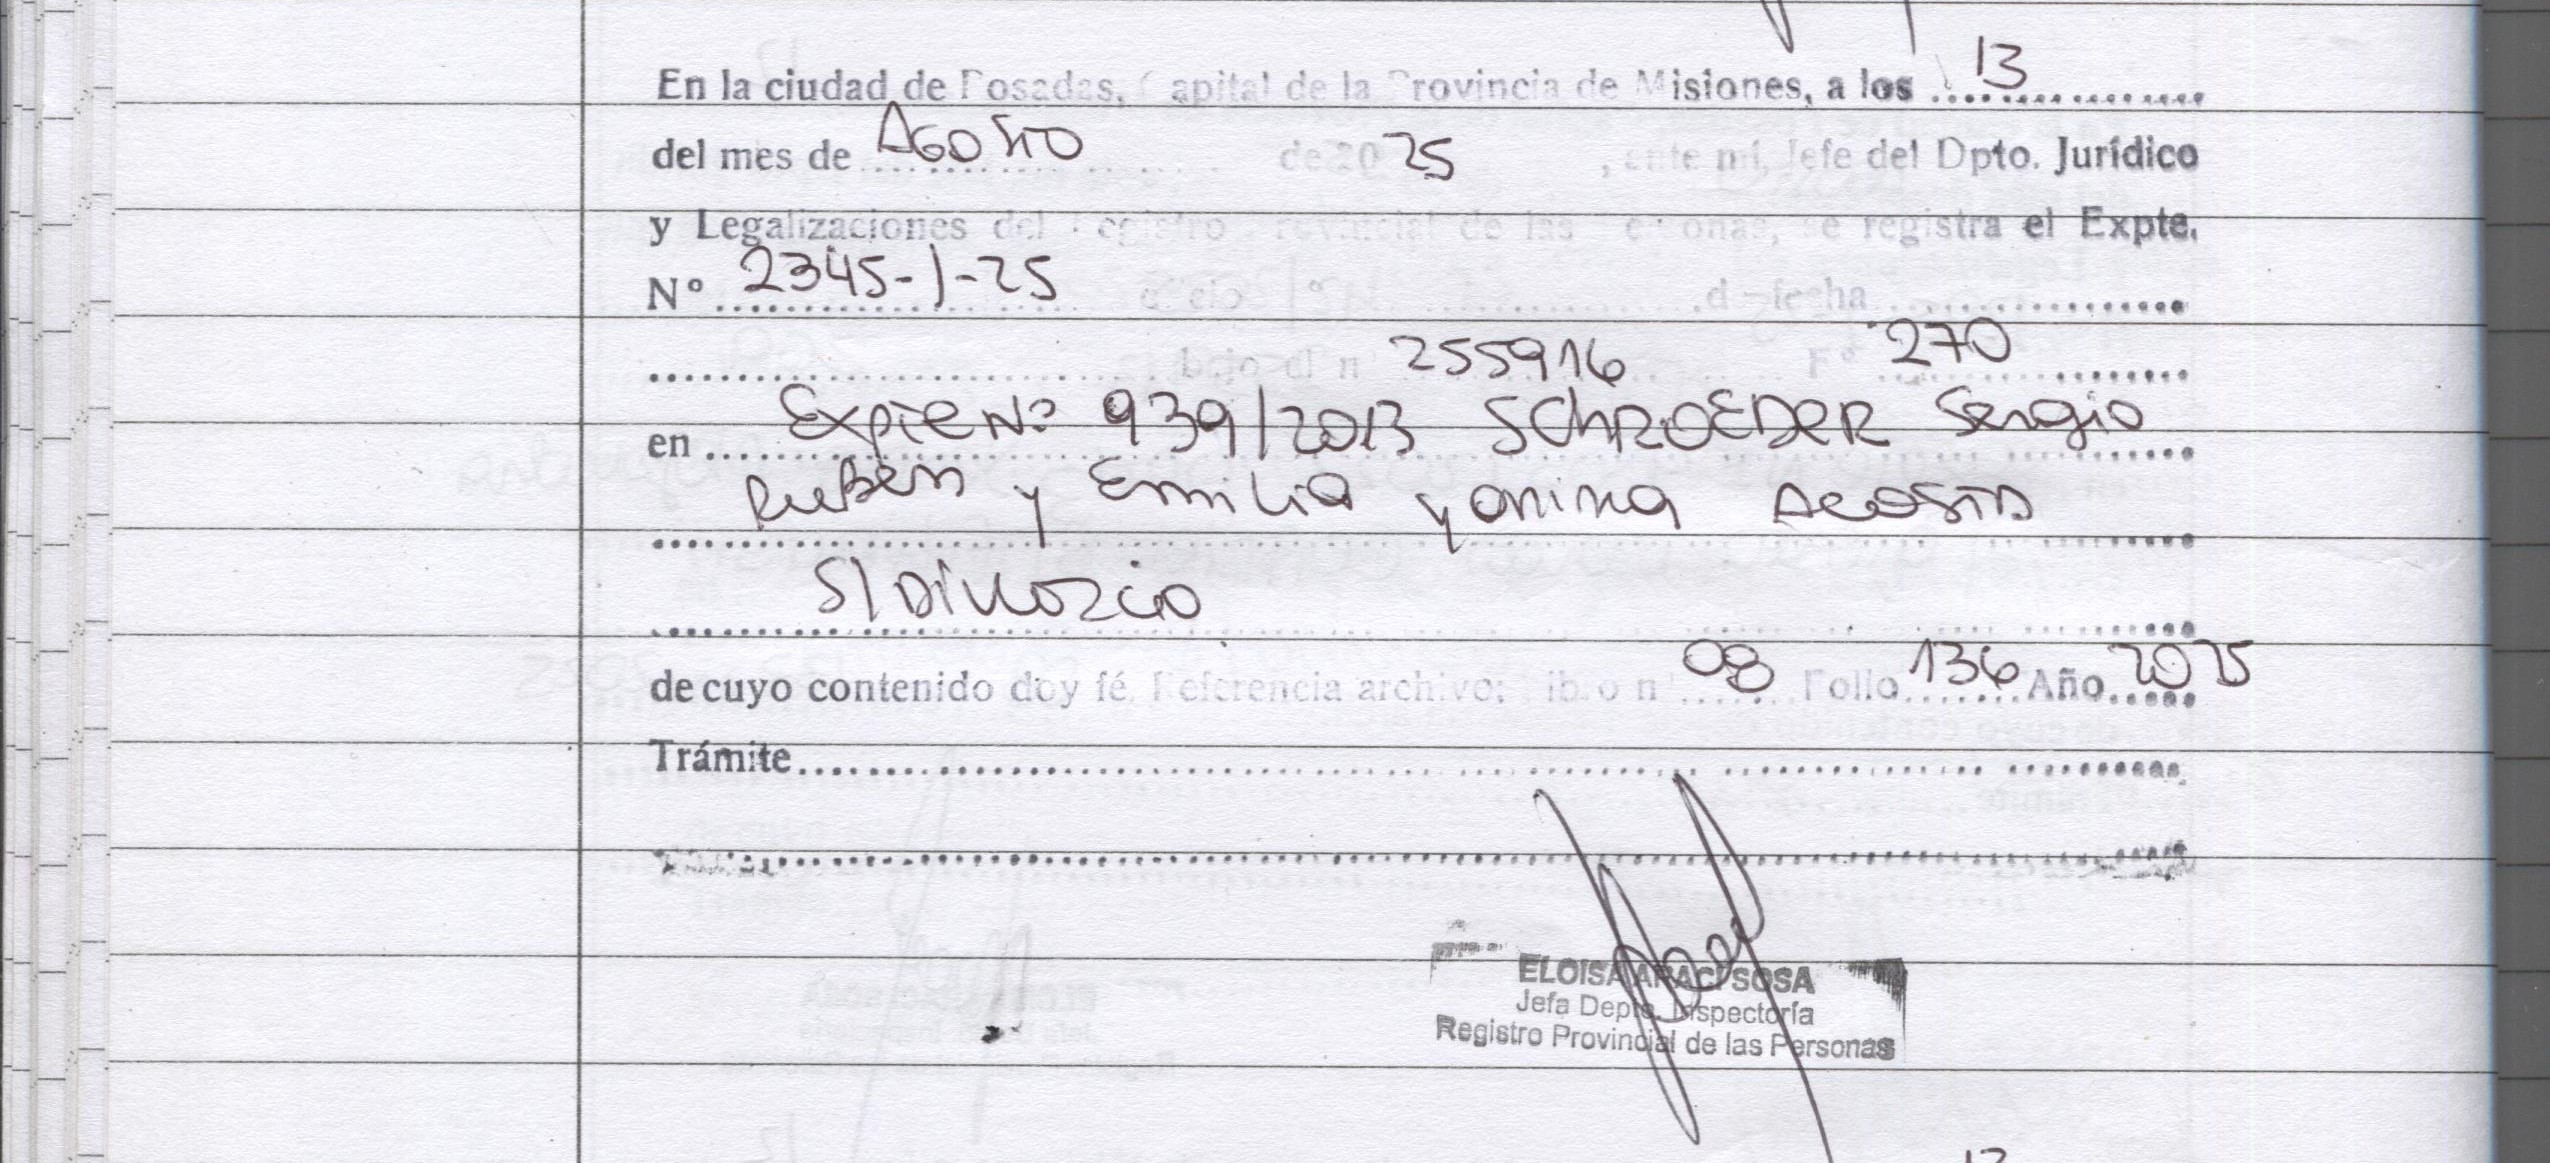 En la ciudad de Posadas, Capital de la Provincia de Misiones, a los 13
del mes de AGOSTO de 20 25, ante mí, Jefe del Dpto. Jurídico
y Legalizaciones del Registro Provincial de las Personas, se registra el Expte.
Nº 2345-1-25 oficio Nº de fecha
bajo el nº 255916 Fº 270
en Expte Nº 939/2013 SCHROEDER Sergio
Ruben y Emilia yanina Acosta
S/ Divorcio
de cuyo contenido doy fé. Referencia archivo; libro nº 08 Folio 136 Año 2025
Trámite
ELOISA ARACI SOSA
Jefa Depto. Inspectoría
Registro Provincial de las Personas
13